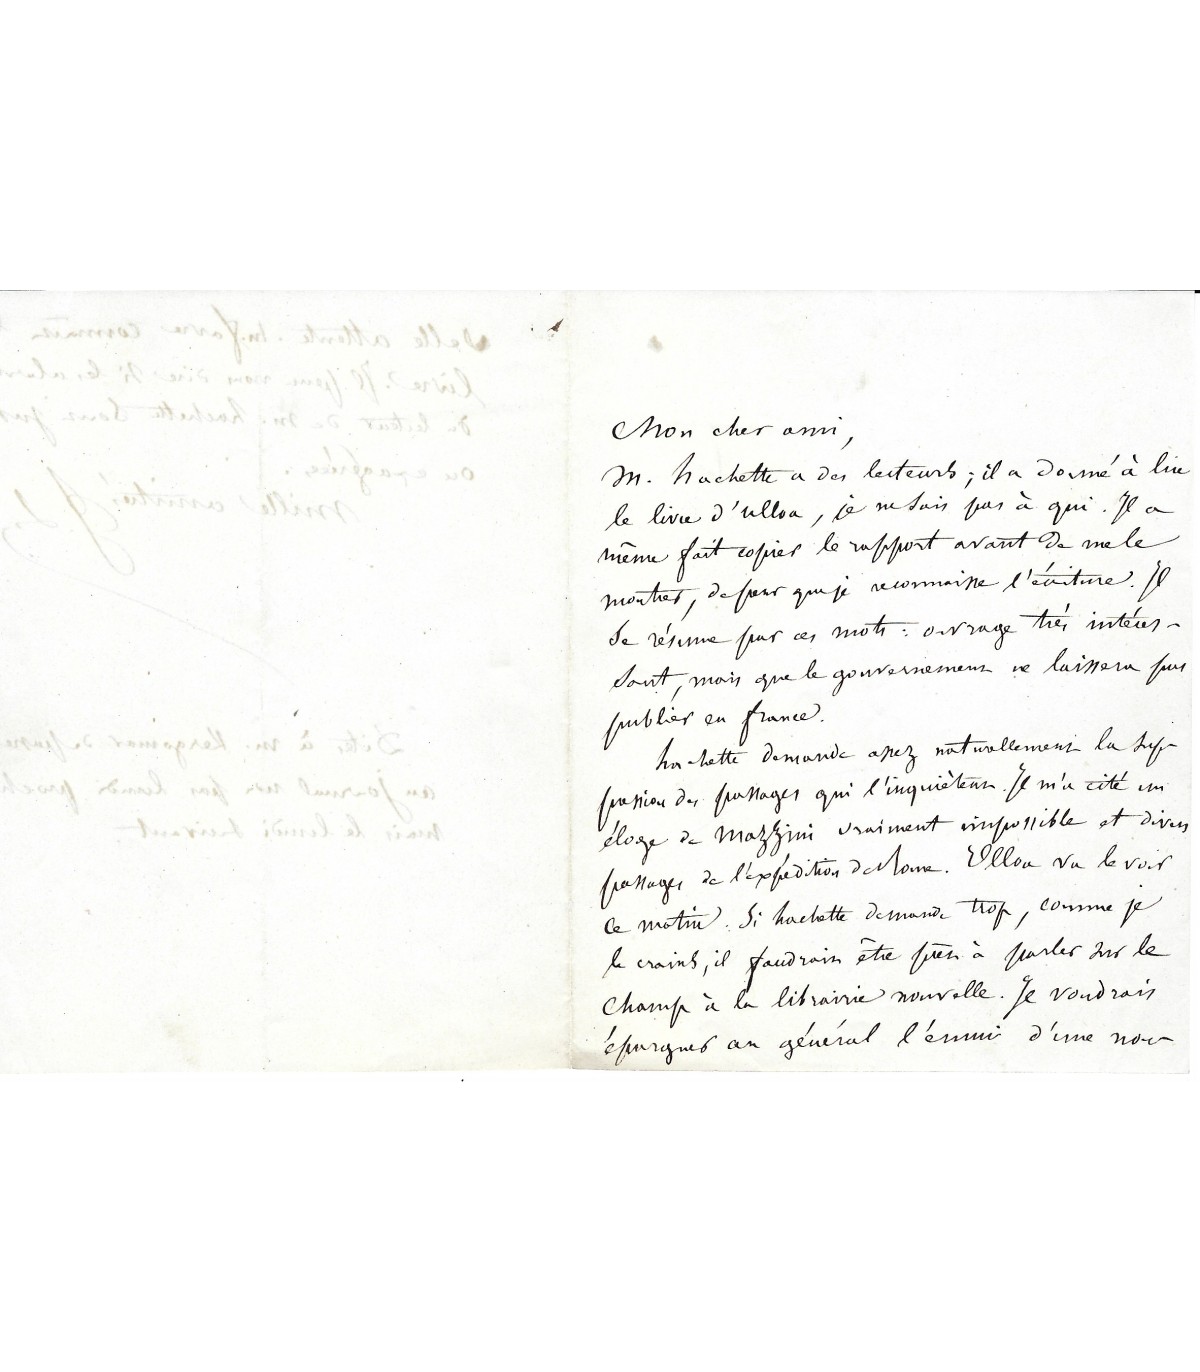 Mon cher ami,
M. hachette a des lecteurs ; il a donné à lire
le livre d'ulloa, je ne sais pas à qui. Il a
même fait copier le rapport avant de me le
montrer, de peur que je reconnaisse l'écriture. Il
se résume par ces mots : ouvrage très intéres-
sant, mais que le gouvernement ne laissera pas
publier en france.
hachette demande assez naturellement la sup-
pression des passages qui l'inquiètent. Il m'a cité un
éloge de Mazzini vraiment impossible et divers
passages de l'expédition de Rome. Ulloa va le voir
ce matin. Si hachette demande trop, comme je
le crains, il faudrait être prêt à parler sur le
champ à la librairie nouvelle. Je voudrais
épargner au général l'ennui d'une nou-
velle attente. M. favre connait
livre ? Il peut vous dire si les alarm
du lecteur de M. hachette sont jus
ou exagérées.
mille amitiés
Dites à M. Kergomar de passer
au journal non pas lundi proch
mais le lundi suivant.